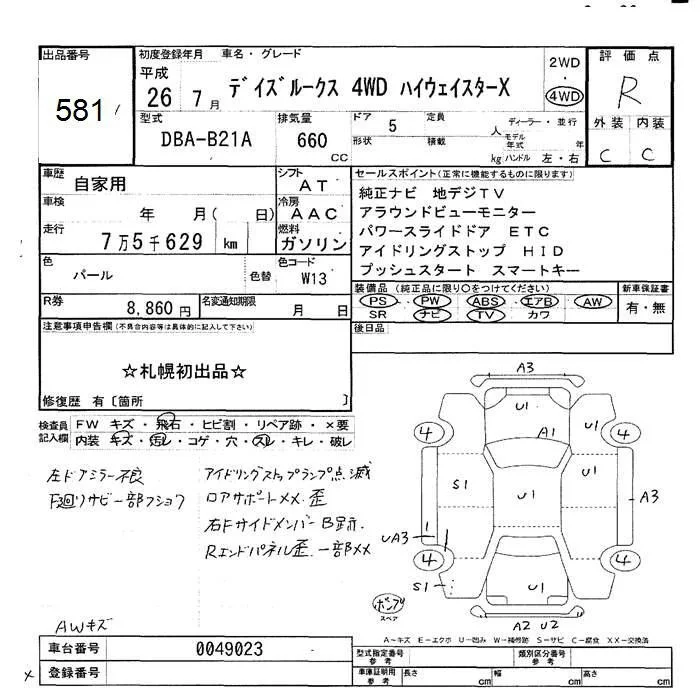 出品番号
581
初度登録年月
平成
26 7月
車名・グレード
デイズルークス 4WD ハイウェイスターX
2WD
・
4WD
評価点
R
型式
DBA-B21A
排気量
660 CC
ドア 5
定員 人
形状
積載 kg
ディーラー・並行
モデル年式 年
ハンドル 左・右
外装 内装
C C
車歴
自家用
シフト
AT
車検
年 月( 日)
冷房
AAC
走行
7万5千629 km
燃料
ガソリン
色
パール
色替
色コード
W13
R券
8,860円
名変通知期限
月 日
セールスポイント(正常に機能するものに限ります)
純正ナビ 地デジTV
アラウンドビューモニター
パワースライドドア ETC
アイドリングストップ HID
プッシュスタート スマートキー
装備品(純正品に限り○をつけてください)
PS PW ABS エアB AW
SR ナビ TV カワ
新車保証書
有・無
後日品
注意事項申告欄(不具合内容等は具体的に記入して下さい)
☆札幌初出品☆
修復歴 有〔箇所 〕
検査員記入欄
FW キズ・飛石・ヒビ割・リペア跡・×要
内装 キズ・汚レ・コゲ・穴・スレ・キレ・破レ
左ドアミラー不良
F廻りサビ一部フショク
アイドリングストップランプ点滅
ロアサポートXX.歪
右Fサイドメンバー
Rエンドパネル歪.一部XX
AWキズ
A3
U1
A1
4
4
S1
U1
U1
A3
UA3
4
4
S1
U1
A2 U2
ポンプ
スペア
A〜キズ E〜エクボ U〜凹み W〜補修跡 S〜サビ C〜腐食 XX〜交換済
車台番号
0049023
登録番号
型式指定番号
参考
類別区分番号
参考
車庫証明用
参考
長さ cm
幅 cm
高さ cm